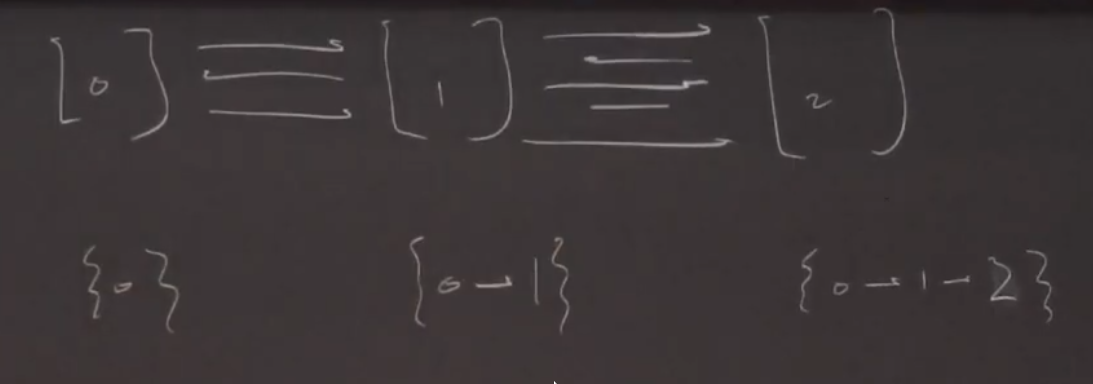 [0] → ← → [1] → ← → — → [2]
{0} {0 → 1} {0 → 1 → 2}